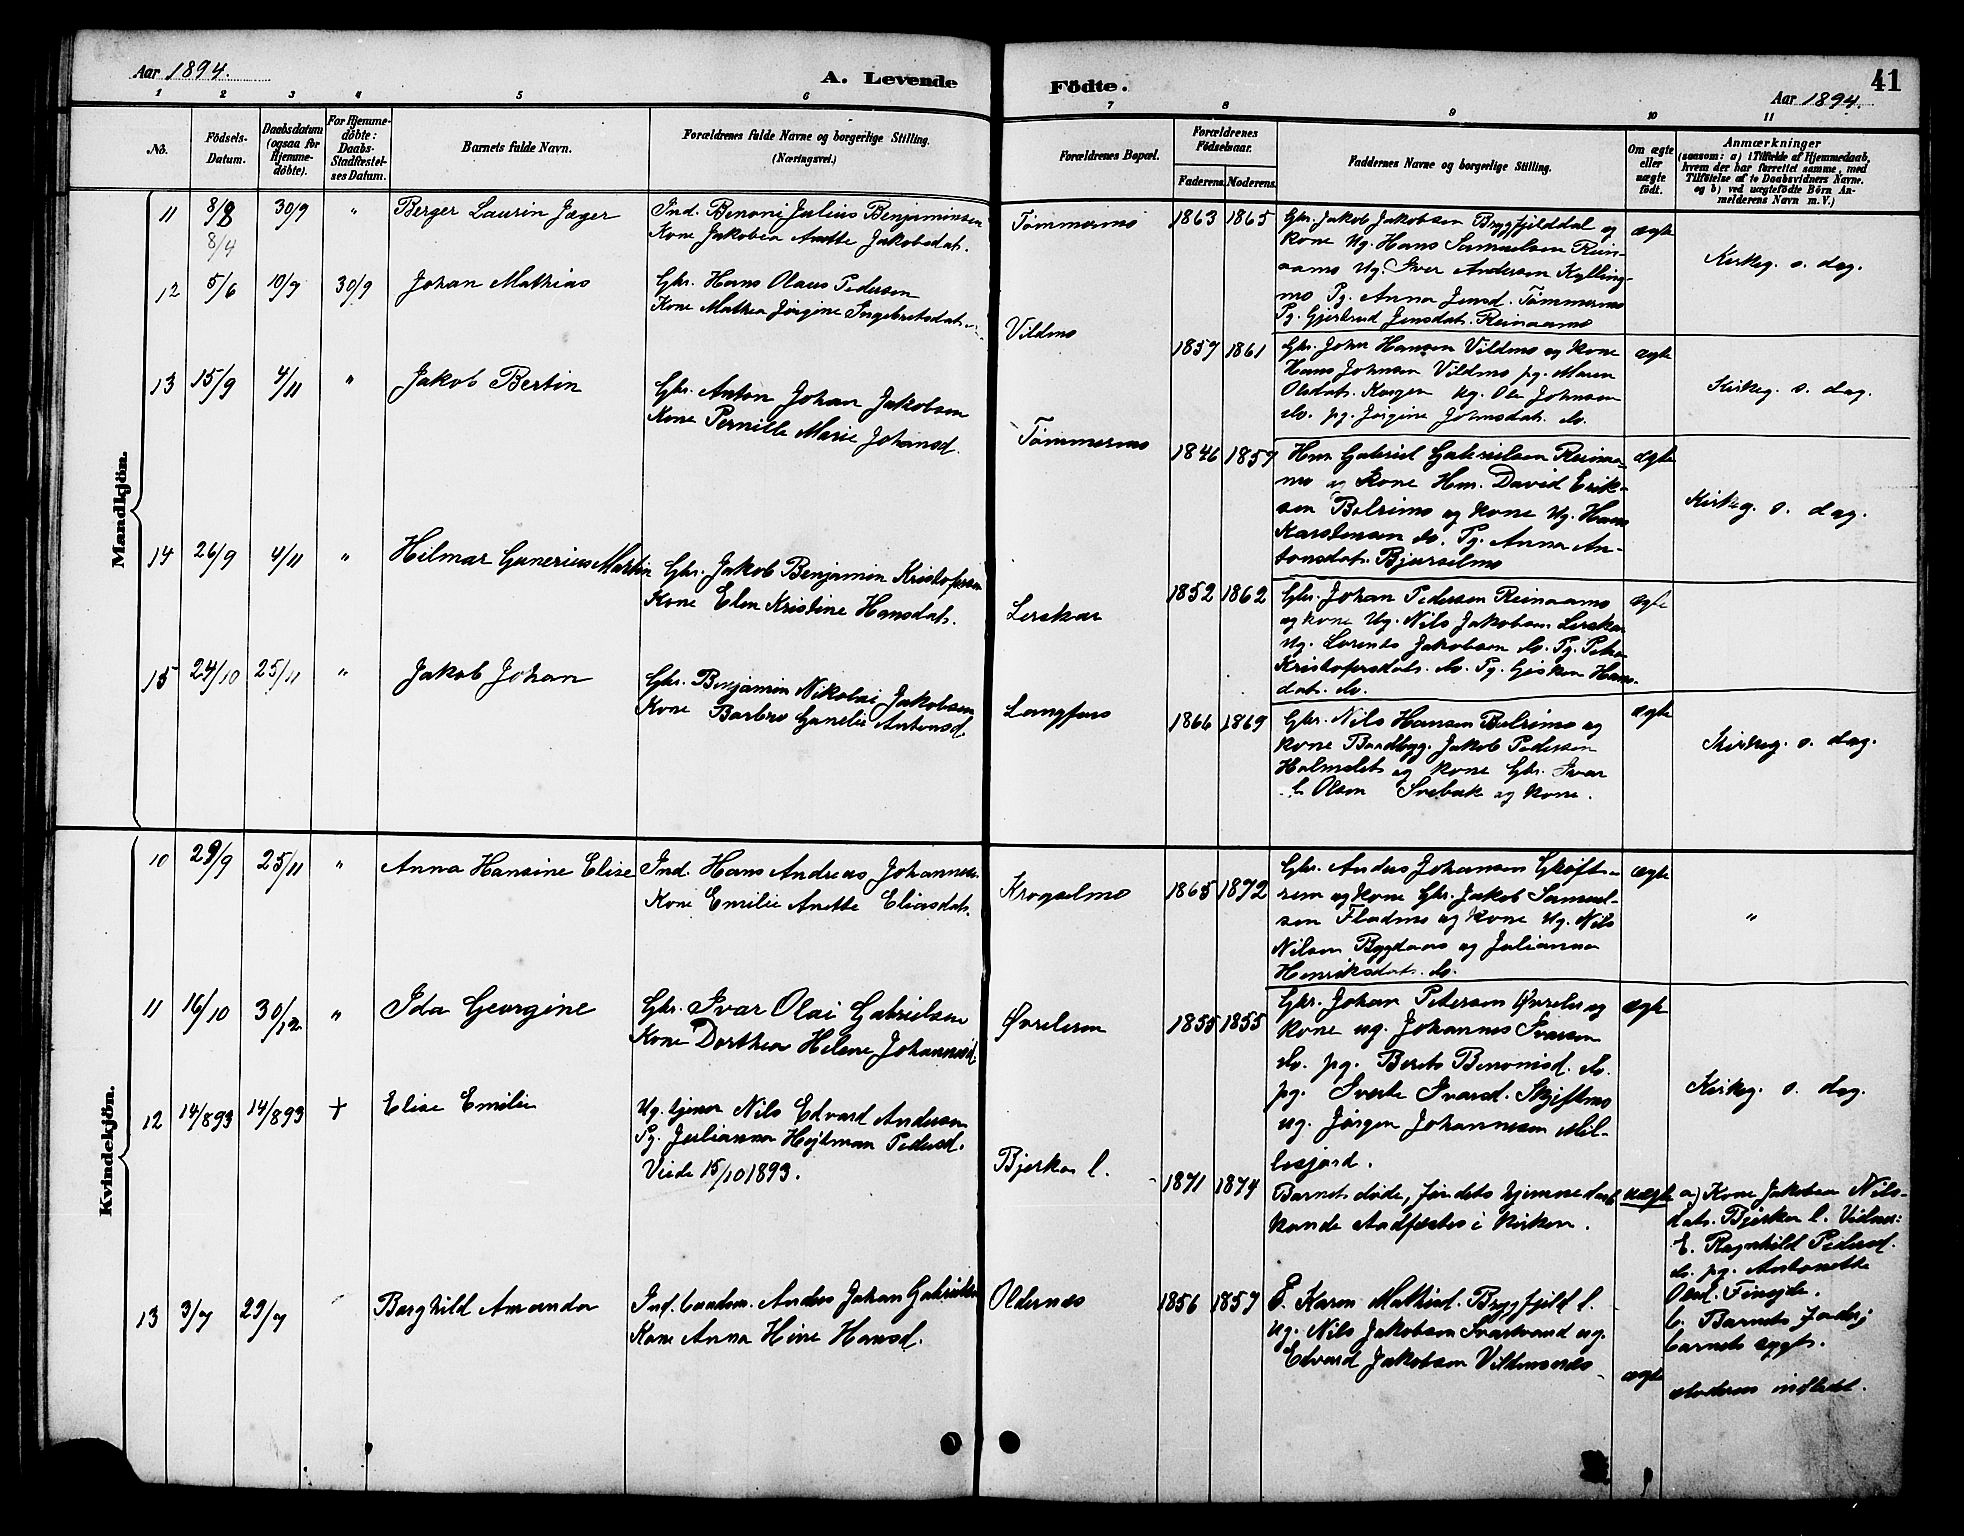 Aar 1894.
A. Levende
1 2 3 4 5 6
No.
Fødsels-
Datum.
Daabsdatum
(ogsaa for
Hjemme-
døbte).
For Hjemme-
døbte:
Daabs-
Stadfæstel-
ses Datum.
Barnets fulde Navn.
Forældrenes fulde Navne og borgerlige Stilling.
(Næringsvei.)
Mandkjön.
11 8/8 30/9 " Berger Laurin Jæger Ind. Benoni Julius Benjaminsen
8/4 Kone Jakobea Anette Jakobsdat.
12 5/6 10/9 30/9 Johan Mathias Gbr. Hans Olaus Pedersen
Kone Mathea Jørgine Ingebretsdat.
13 15/9 4/11 " Jakob Bertin Gbr. Anton Johan Jakobsen
Kone Pernille Marie Johansd.
14 26/9 4/11 " Hilmar Gunerius Martin Gbr. Jakob Benjamin Kristofersen
Kone Elen Kristine Hansdat.
15 24/10 25/11 " Jakob Johan Gbr. Benjamin Nikolai Jakobsen
Kone Barbro Gunelie Antonsd.
Kvindekjön.
10 29/9 25/11 " Anna Hansine Elise Ind. Hans Andreas Johannes.
Kone Emilie Anette Eliasdat.
11 16/10 30/12 " Ida Georgine Gbr. Ivar Olai Gabrielsen
Kone Dorthea Helene Johannesd.
12 14/893 14/893 + Elise Emilie Ug. tjener Nils Edvard Andersen
Pg. Julianna Hejdman Pedersd.
Viede 15/10 1893.
13 3/7 29/7 Barghild Amanda Ind. Anders Johan Gabrielsen
Kone Anna Hine Hansd.
Födte.
41
Aar 1894.
7 8 9 10 11
Forældrenes Bopæl.
Forældrenes
Födselsaar.
Faderens. Moderens.
Faddernes Navne og borgerlige Stilling.
Om ægte
eller
uægte
födt.
Anmærkninger
(saasom: a) i Tilfælde af Hjemmedaab,
hvem der har forrettet samme, med
Tilføielse af to Daabsvidners Navne.
og b) ved uægtefödte Börn An-
melderens Navn m. V.)
Tømmermo 1863 1865 Gbr. Jakob Jakobsen Bryggfjelddal og ægte
kone Ug. Hans Samuelsen Rein-
aamo Ug. Iver Andersen Kylling-
mo Pg. Anna Jensd. Tømmermo
Pg. Gjertrud Jensdat. Reinaamo
Kirkeg. s. dag.
Vildmo 1857 1861 Gbr. John Hansen Vildmo og kone ægte
Hans Johnsen Vildmo pg. Maren
Olsdat. Kongen Ug. Ole Johnsen
do. pg. Jørgine Johnsdat. do.
Kirkeg. s. dag.
Tømmermo 1846 1857 Hm. Gabriel Gabrielsen Reinaa- ægte
mo og Kone Hm. David Erik-
sen Bolsimo og kone Ug. Hans
Karstensen do. Pg. Anna An-
tonsdat. Bjurselmo
Kirkeg. s. dag.
Lerskar 1852 1862 Gbr. Johan Pedersen Reinaamo ægte
og kone Ug. Nils Jakobsen Lerskar
Ug. Lorents Jakobsen do. Pg. Petra
Kristofersdat. do. Pg. Gjøken Hans-
dat. do.
Langfors 1866 1869 Gbr. Nils Hansen Bolsimo og ægte
kone Baadbygg. Jakob Pedersen
Holmslet og kone Gbr. Ivar
Olsen og kone.
Kirkeg. s. dag.
Krogselmo 1865 1872 Gbr. Anders Johansen ægte
og kone Gbr. Jakob Samuel-
sen Fladmo og kone Ug. Nils
Nilsen Bygdaas og Julianna
Henriksdat. do.
"
Øvreleren 1855 1855 Gbr. Johan Petersen Øvreler og ægte
kone ug. Johannes Ivarsen
do. pg. Berets Benonisd. do.
pg. Ivard. Skjiftmo
ug. Jørgen Johannesen Mil-
lesjord.
Kirkeg. s. dag.
Bjerka l. 1871 1874 Barnet døde, før dets hjemmedaab uægte
kunde stadfæstes i kirken.
a) Kone Jakobea Nils-
dat. Bjerka l. Vidner:
E. Ragnhild Pedersd.
do. pg. Antonette
Olsd. Finejde.
b. Barnets Fader
barnet sygt.
Oldernes 1856 1857 E. Karen Mathisd. Bryggfjeld l.
Ug. Nils Jakobsen Svartvand ug.
Edvard Jakobsen Vildmones
ægte
Moderen indledet.